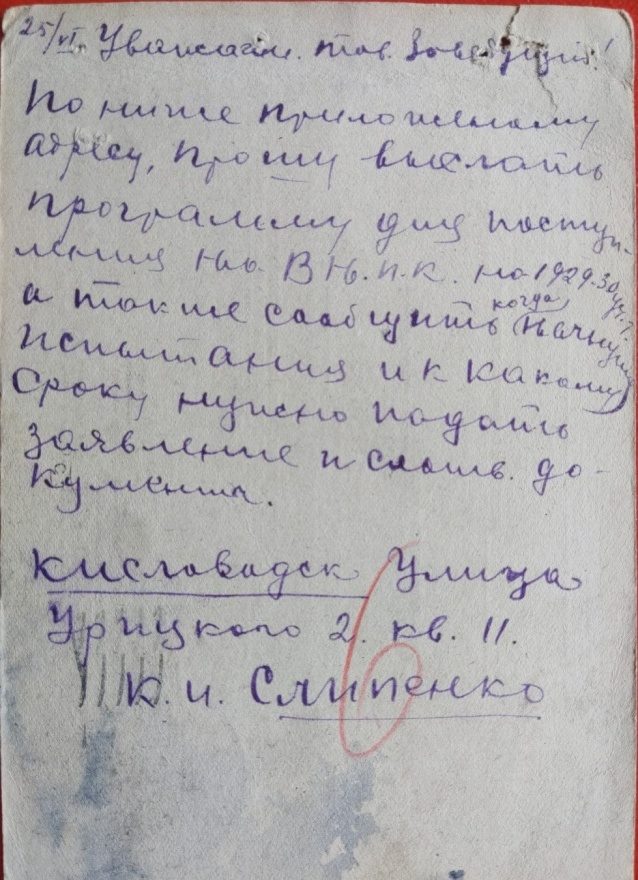 25/VI. Уважаем. тов. Заведующий!
По ниже приложенному
адресу, прошу выслать
программу для поступ-
ления на В.Н.П.К. на 1929-30 уч. г.
а также сообщить когда начнутся
испытания и к какому
сроку нужно подать
заявление и соотв. до-
кументы.
Кисловодск Улица
Урицкого 2. кв. 11.
К. И. Слипенко